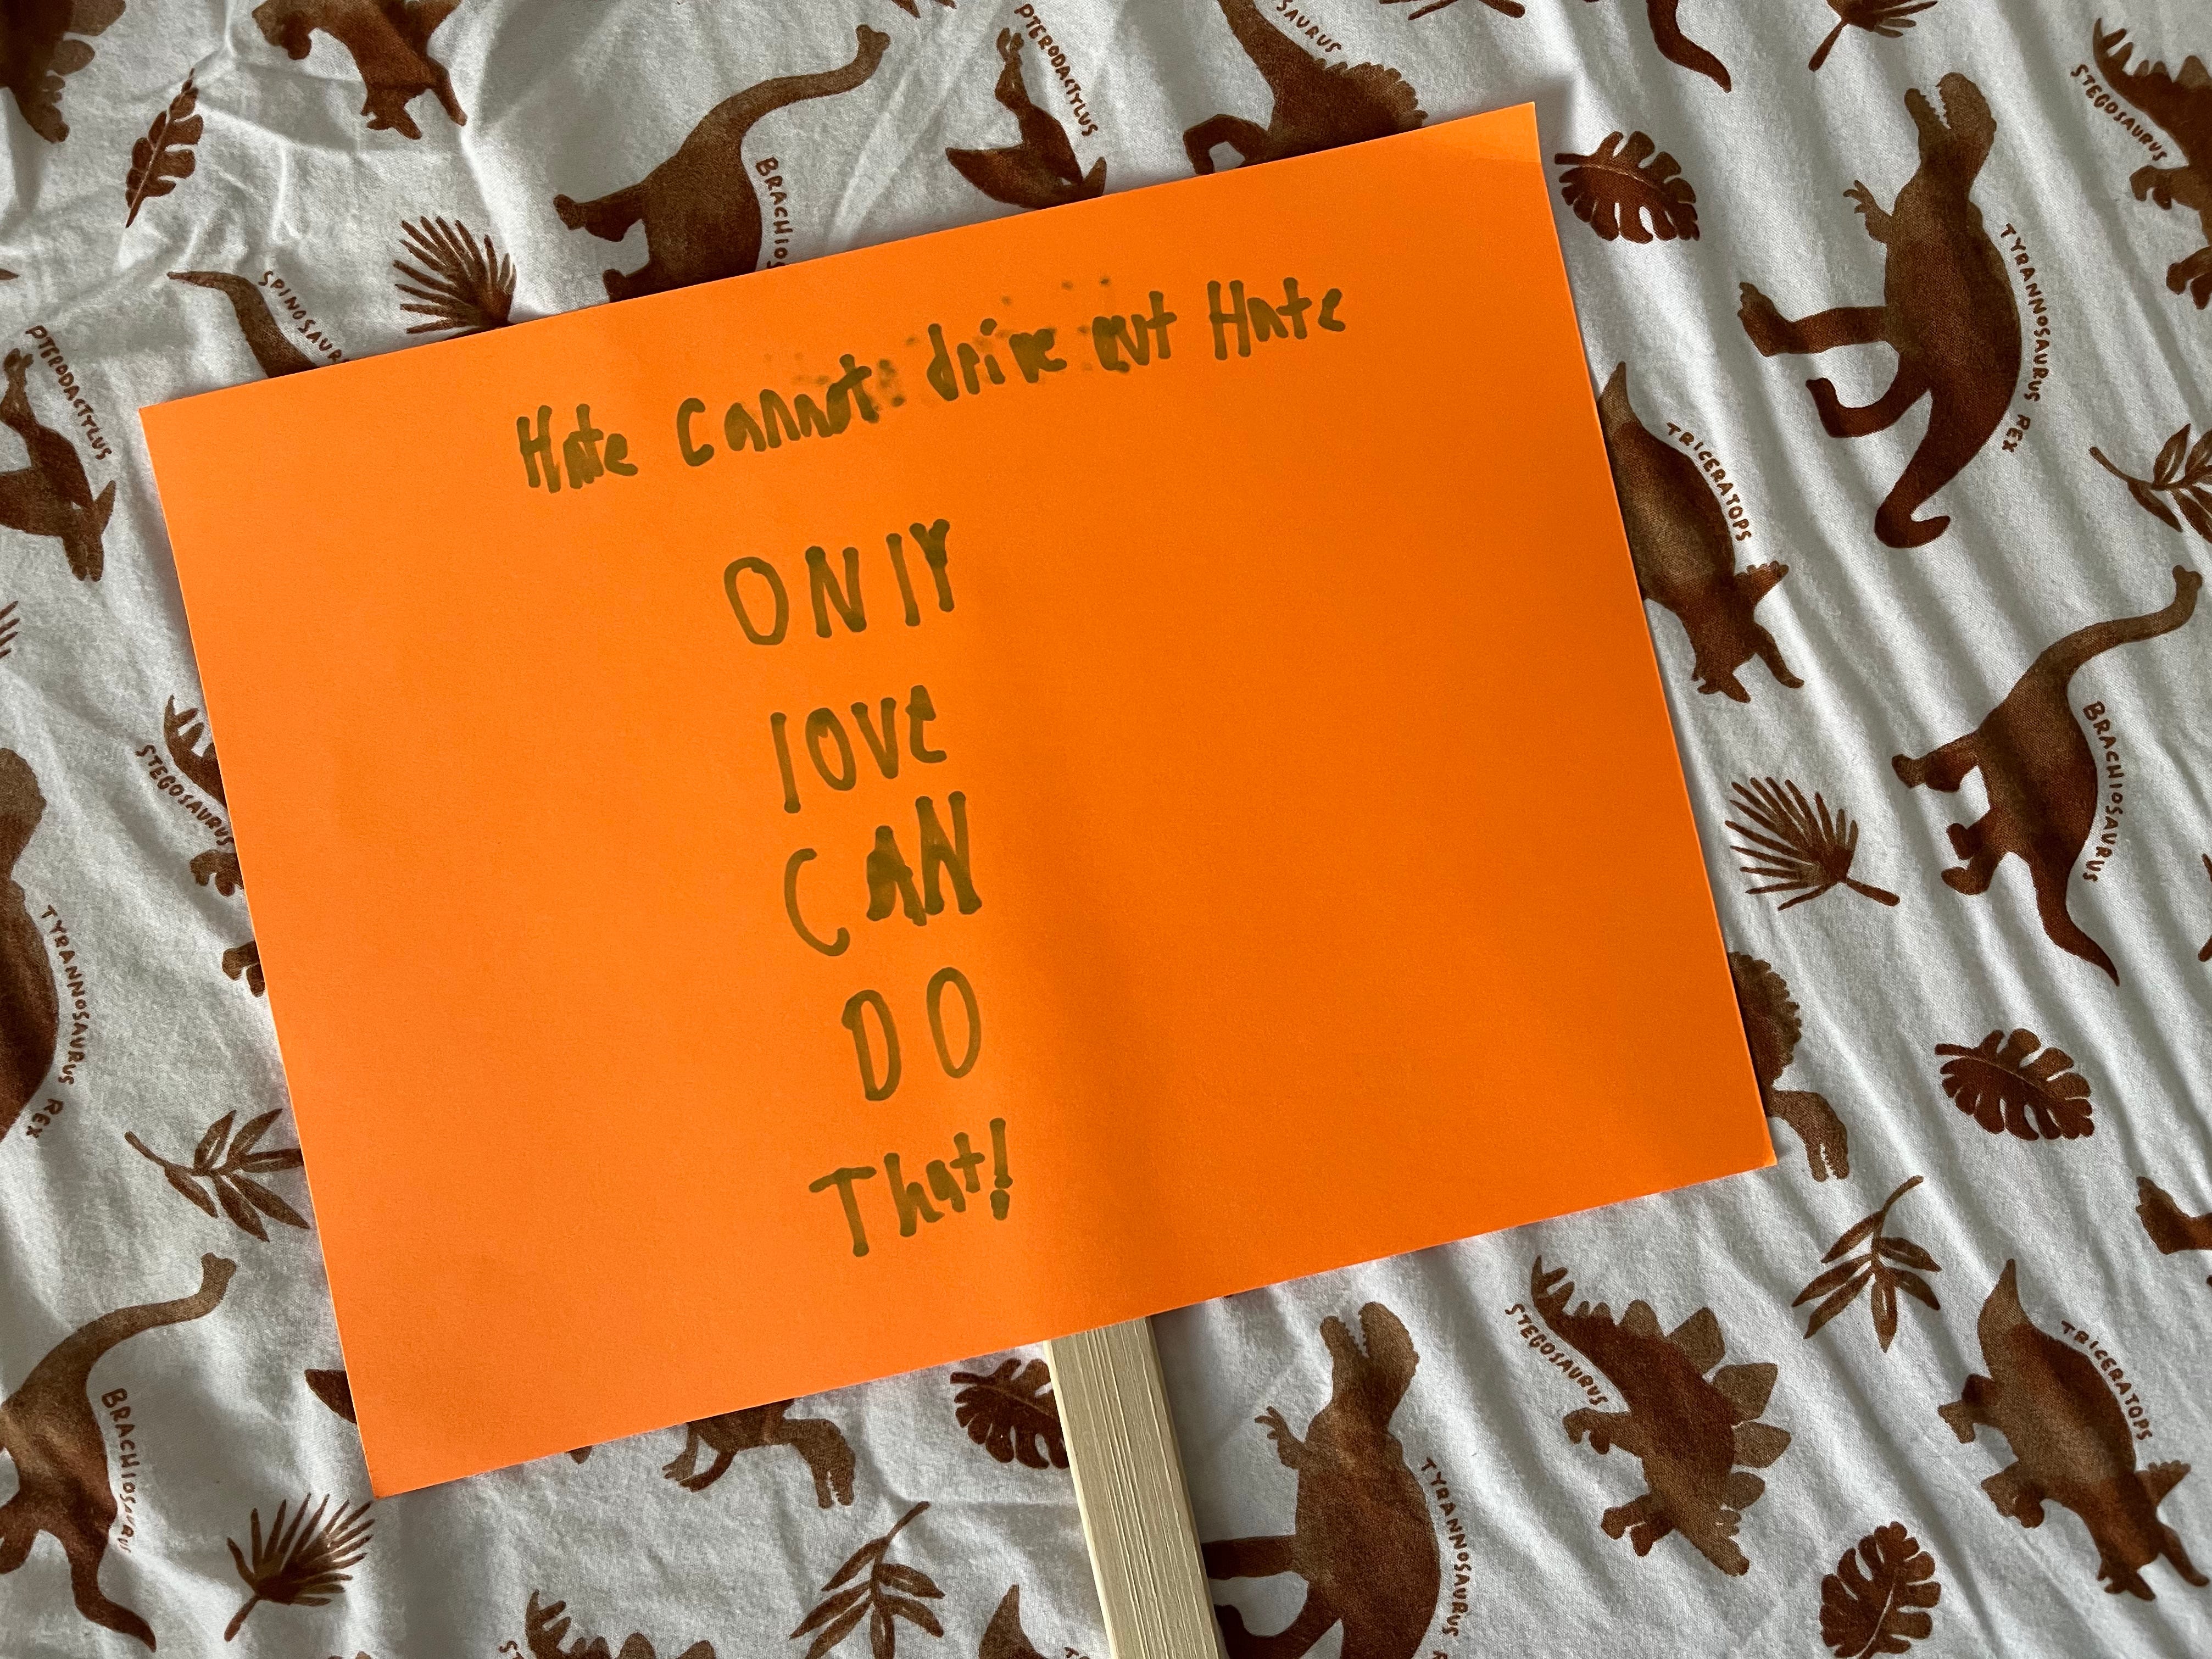 Hate Cannot drive out Hate
ONlY
love
CAN
DO
That!
PTERODACTYLUS
SAURUS
STEGOSAURUS
BRACHIOS
SPINOSAUR
PTERODACTYLUS
TYRANNOSAURUS REX
TRICERATOPS
STEGOSAURUS
BRACHIOSAURUS
TYRANNOSAURUS REX
BRACHIOSAURUS
STEGOSAURUS
TRICERATOPS
TYRANNOSAURUS R